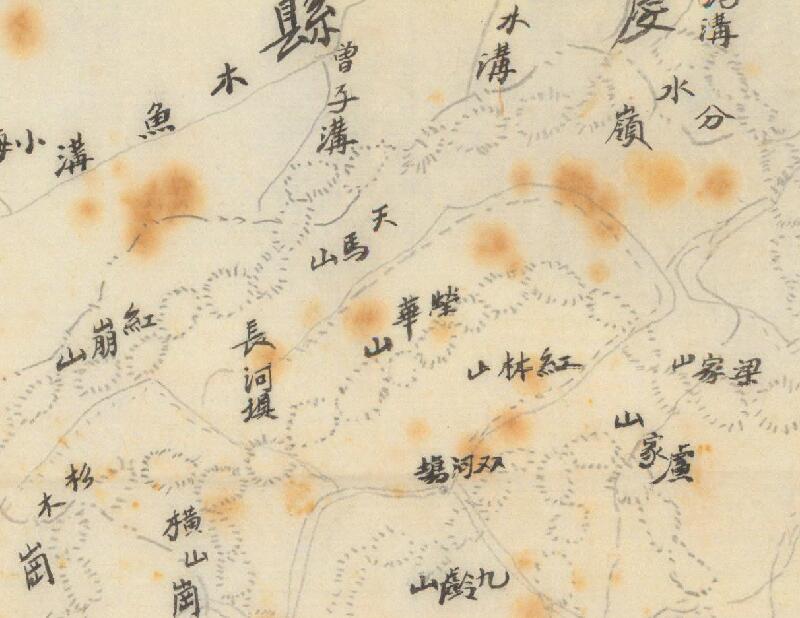 縣
水溝
溝
曾子溝
木魚溝
小
分水嶺
天馬山
紅崩山
華山
長河壩
紅林山
梁家山
盧家山
双河
杉木崗
橫山崗
九山